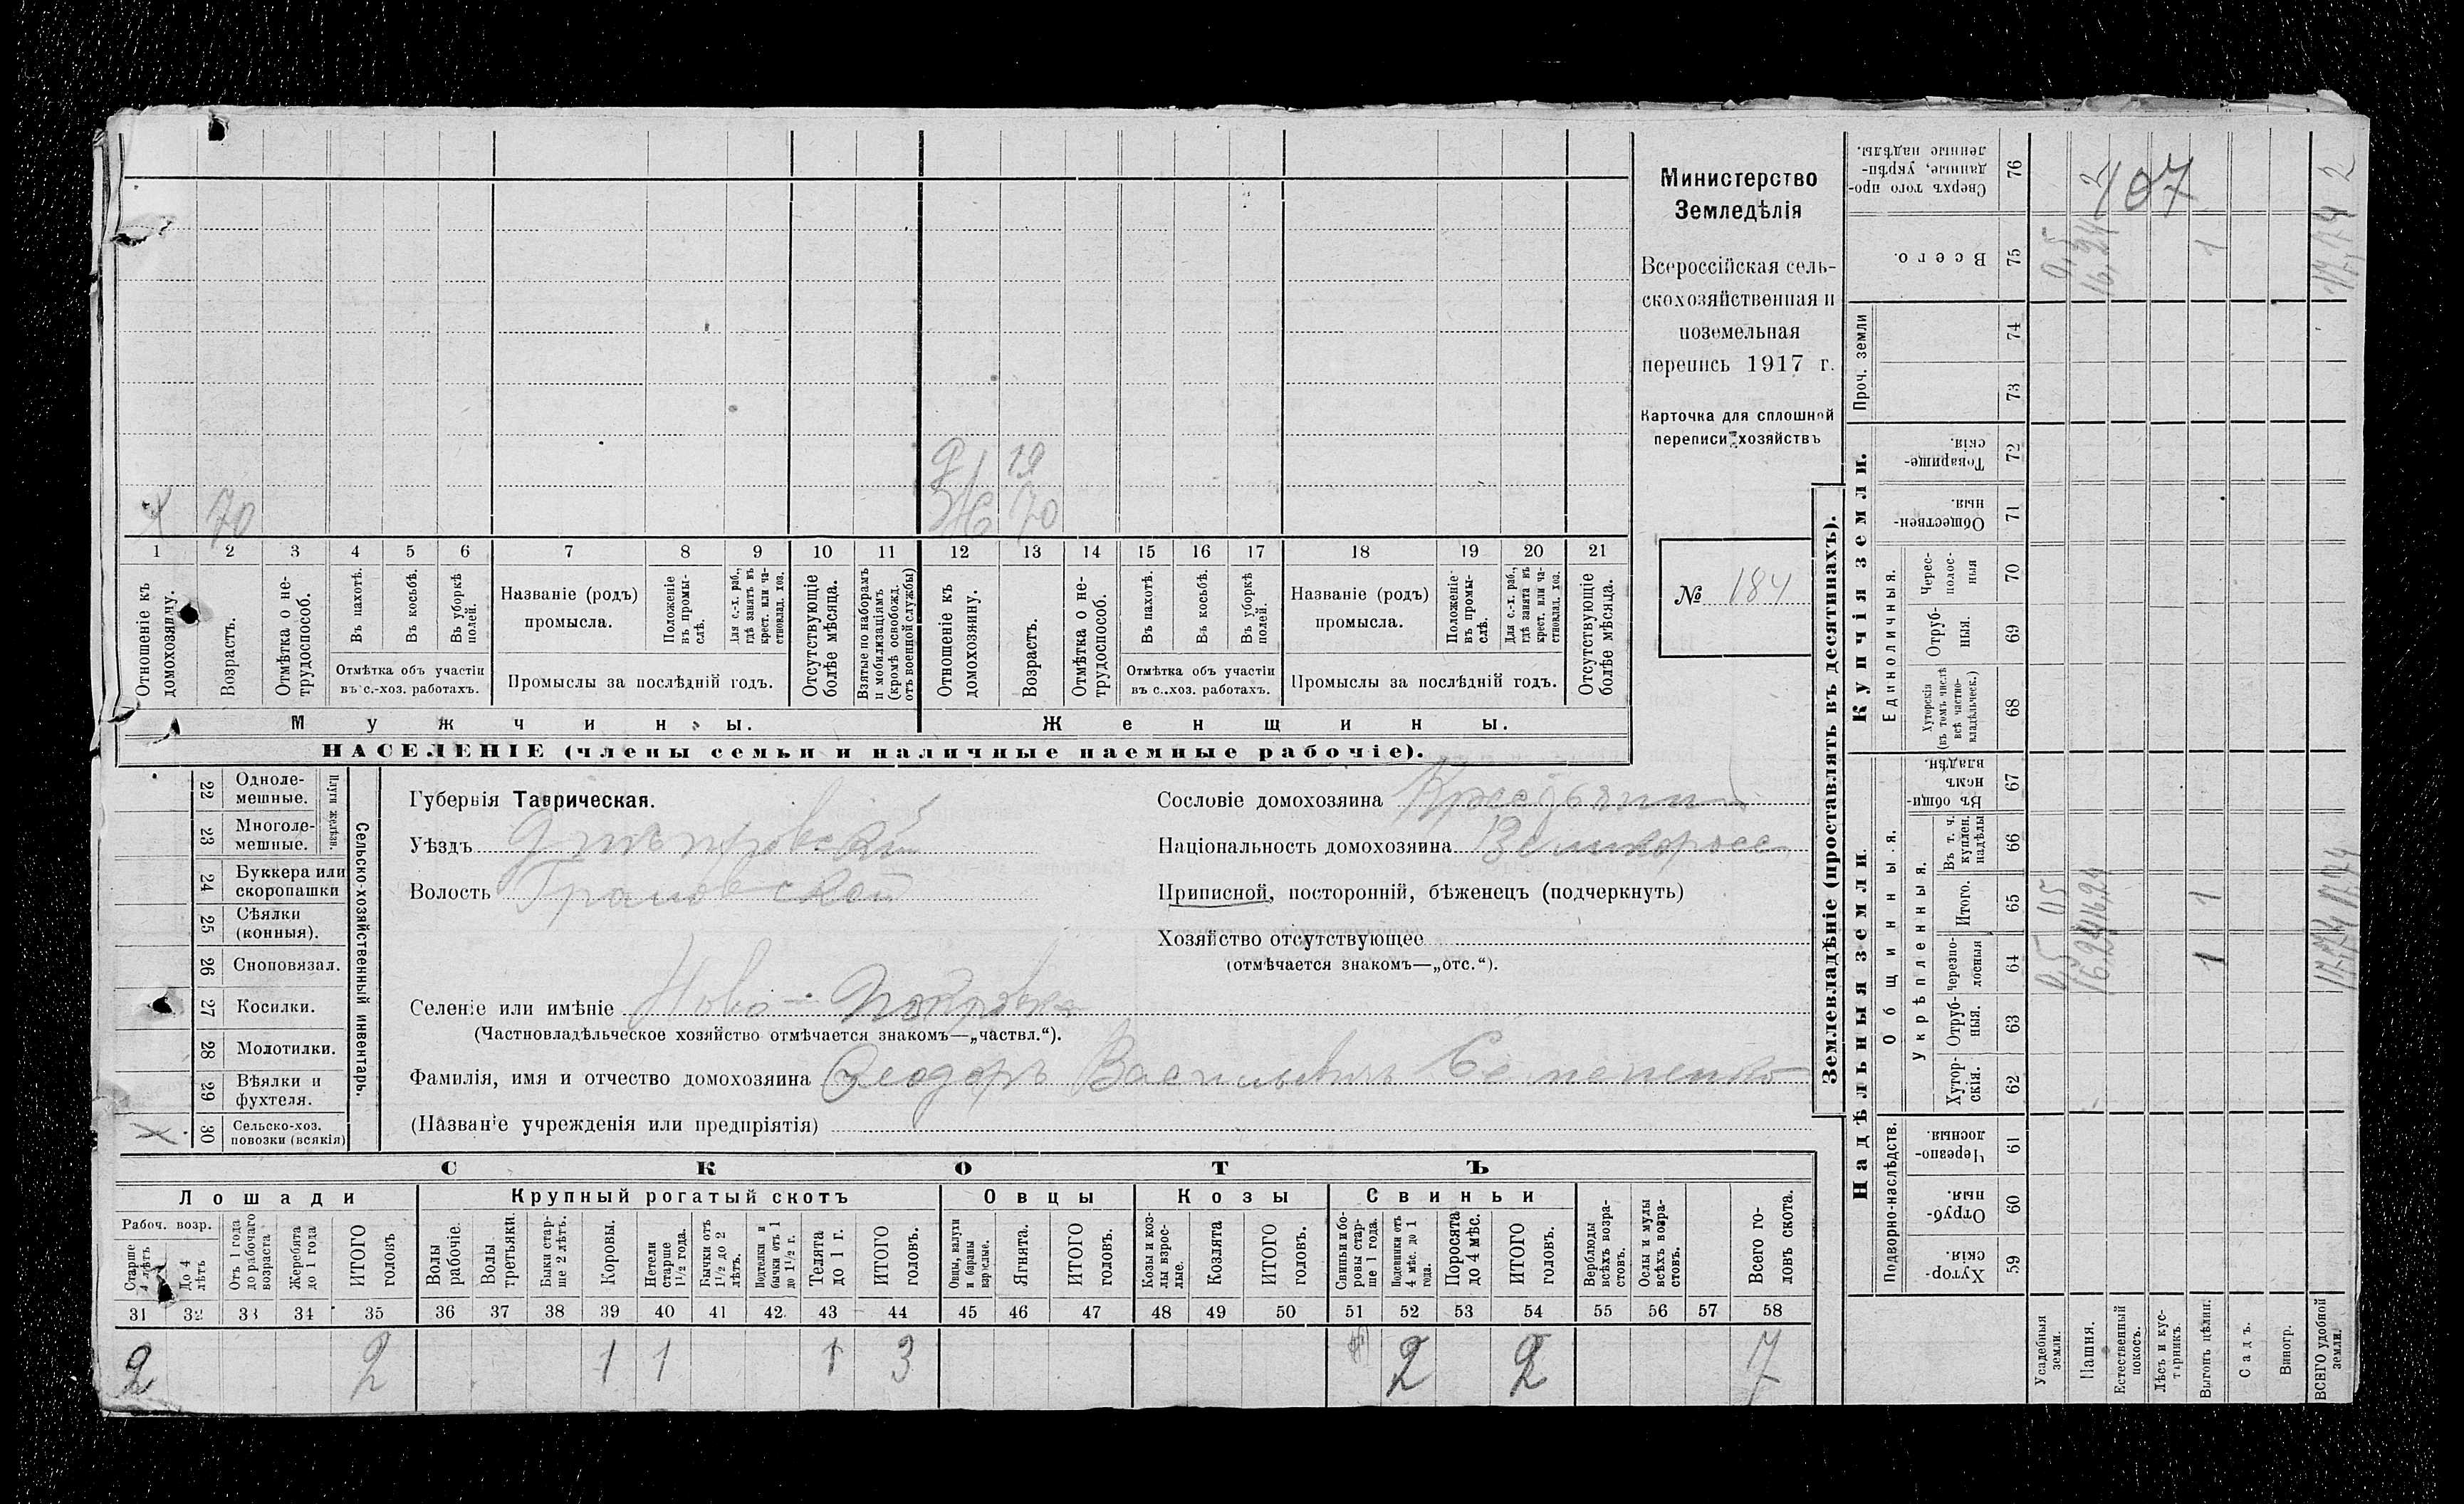 Х 70
Д 19
Ж 70
1 2 3 4 5 6 7 8 9 10 11 12 13 14 15 16 17 18 19 20 21
Отношеніе къ домохозяину.
Возрастъ.
Отмѣтка о не-
трудоспособ.
Въ пахотѣ.
Въ косьбѣ.
Въ уборкѣ
полей.
Отмѣтка объ участіи
въ с.-хоз. работахъ.
Названіе (родъ)
промысла.
Положеніе
въ промы-
слѣ.
Для с.-х. раб.,
гдѣ занятъ въ
крест. или ча-
стновлад. хоз.
Промыслы за послѣдній годъ.
Отсутствующіе
болѣе мѣсяца.
Взятые по наборамъ
и мобилизаціямъ
(кромѣ освобожд.
отъ военной службы)
Отношеніе къ
домохозяину.
Возрастъ.
Отмѣтка о не-
трудоспособ.
Въ пахотѣ.
Въ косьбѣ.
Въ уборкѣ
полей.
Отмѣтка объ участіи
въ с..хоз. работахъ.
Названіе (родъ)
промысла.
Положеніе
въ промы-
слѣ.
Для с.-х. раб.,
гдѣ занята въ
крест. или ча-
стновлад. хоз.
Промыслы за послѣдній годъ.
Отсутствующіе
болѣе мѣсяца.
Мужчины. Женщины.
НАСЕЛЕНІЕ (члены семьи и наличные наемные рабочіе).
Министерство
Земледѣлія
Всероссійская сель-
скохозяйственная и
поземельная
перепись 1917 г.
Карточка для сплошной
переписи хозяйствъ
№ 184
22 Одноле-
мешные.
23 Многоле-
мешные.
Плуги желѣзн.
24 Буккера или
скоропашки
25 Сѣялки
(конныя).
26 Сноповязал.
27 Косилки.
28 Молотилки.
29 Вѣялки и
фухтеля.
30 Сельско-хоз.
повозки (всякія)
Х
Сельско-хозяйственный инвентарь.
Губернія Таврическая.
Уѣздъ Днѣпровскій
Волость
Селеніе или имѣніе Ново-Покровка
(Частновладѣльческое хозяйство отмѣчается знакомъ—„частвл.“).
Фамилія, имя и отчество домохозяина Ѳеодоръ Васильевичъ Семененко
(Названіе учрежденія или предпріятія)
Сословіе домохозяина Крестьянин
Національность домохозяина Великоросс
Приписной, посторонній, бѣженецъ (подчеркнуть)
Хозяйство отсутствующее
(отмѣчается знакомъ—„отс.“).
СКОТЪ
Лошади Крупный рогатый скотъ Овцы Козы Свиньи
Рабоч. возр.
Старше
4 лѣтъ
До 4
лѣтъ
Отъ 1 года
до рабочаго
возраста
Жеребята
до 1 года
ИТОГО
головъ
Волы
рабочіе.
Волы
третьяки.
Быки стар-
ше 2 лѣтъ.
Коровы.
Нетели
старше
1½ года.
Бычки отъ
1½ до 2
лѣтъ.
Подтелки и
бычки отъ 1
до 1½ г.
Телята
до 1 г.
ИТОГО
головъ.
Овцы, валухи
и бараны
взрослые.
Ягнята.
ИТОГО
головъ.
Козы и коз-
лы взрос-
лые.
Козлята
ИТОГО
головъ.
Свиньи и бо-
ровы стар-
ше 1 года.
Подсвинки отъ
4 мѣс. до 1
года.
Поросята
до 4 мѣс.
ИТОГО
головъ.
Верблюды
всѣхъ возра-
стовъ.
Ослы и мулы
всѣхъ возра-
стовъ.
Всего го-
ловъ скота.
31 32 33 34 35 36 37 38 39 40 41 42. 43 44 45 46 47 48 49 50 51 52 53 54 55 56 57 58
2 2 1 1 1 3 2 2 7
Землевладѣніе (проставлять въ десятинахъ).
Надѣльныя земли Купчія земли. Проч. земли
Подворно-наслѣдств. Общинныя.
Укрѣпленныя. Единоличныя.
Хутор-
скія. 59
Отруб-
ныя. 60
Черезпо-
лосныя. 61
Хутор-
скія. 62
Отруб-
ныя. 63
Черезпо-
лосныя 64
Итого. 65
Въ т. ч.
куплен.
надѣлы 66
Въ общи-
номъ
владѣн. 67
Хуторскія
(въ томъ числѣ
всѣ частно-
владѣльческ.) 68
Отруб-
ныя. 69
Черес-
полос-
ныя 70
Обществен-
ныя. 71
Товарище-
скія. 72
73
74
Всего. 75
Сверхъ того про-
данные, укрѣп-
ленные надѣлы. 76
Усадебныя
земли.
0,5 0,5 0,5
Пашня.
16,24 16,24 16,24 2
Естественный
покосъ.
Лѣсъ и кус-
тарникъ.
Выгонъ цѣлин.
1 1 1
Садъ.
Виногр.
ВСЕГО удобной
земли.
17,74 17,74 17,74 2
107